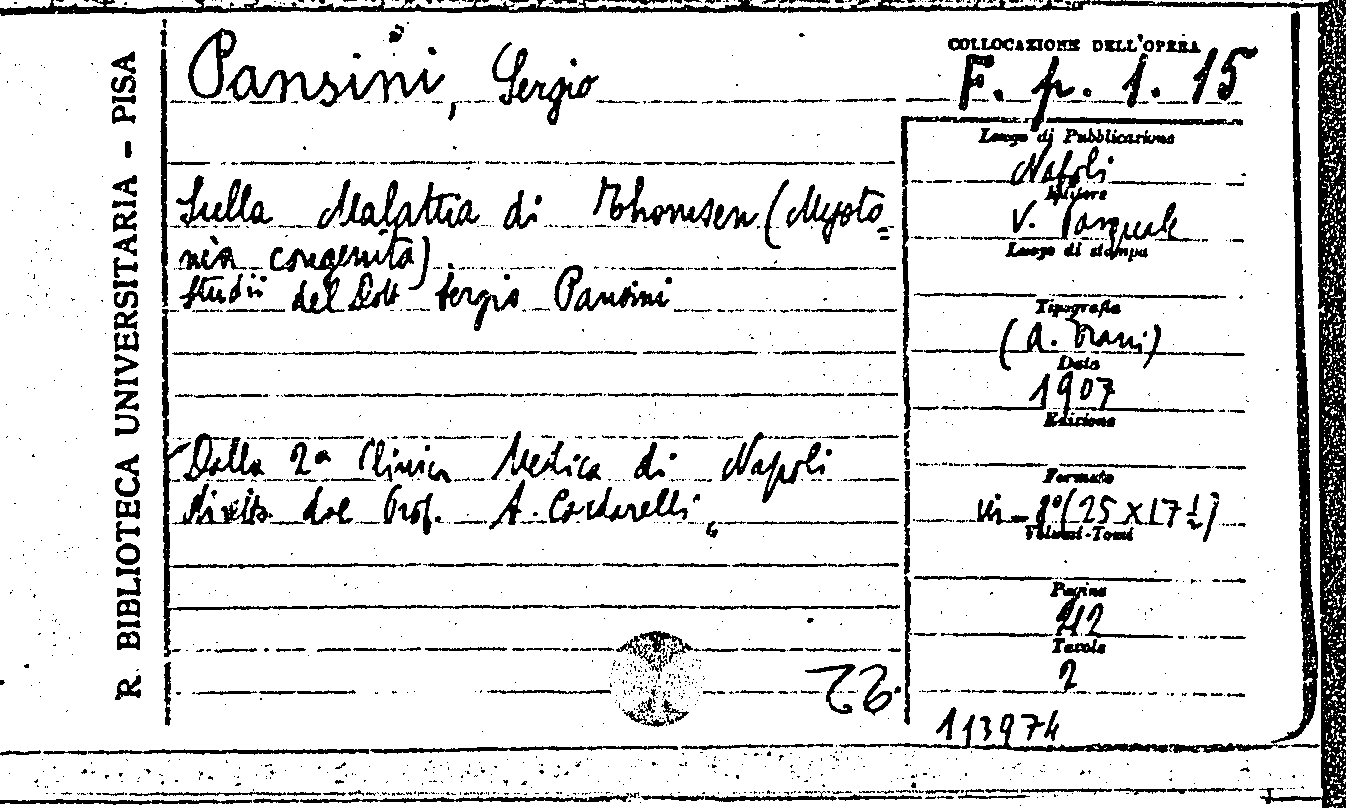 R. BIBLIOTECA UNIVERSITARIA - PISA
Pansini, Sergio
COLLOCAZIONE DELL'OPERA
F. p. 1. 15
Sulla Malattia di Thomsen (Myoto=
nia congenita).
Studii del Dott Sergio Pansini
Dalla 2a Clinica Medica di Napoli
diretta dal Prof. A. Cardarelli
Luogo di Pubblicazione
Napoli
Editore
V. Pasquale
Luogo di stampa
Tipografia
(A. Trani)
Data
1907
Edizione
Formato
in-8°(25 X 17 ½)
Volumi-Tomi
Pagine
212
Tavole
2
113974